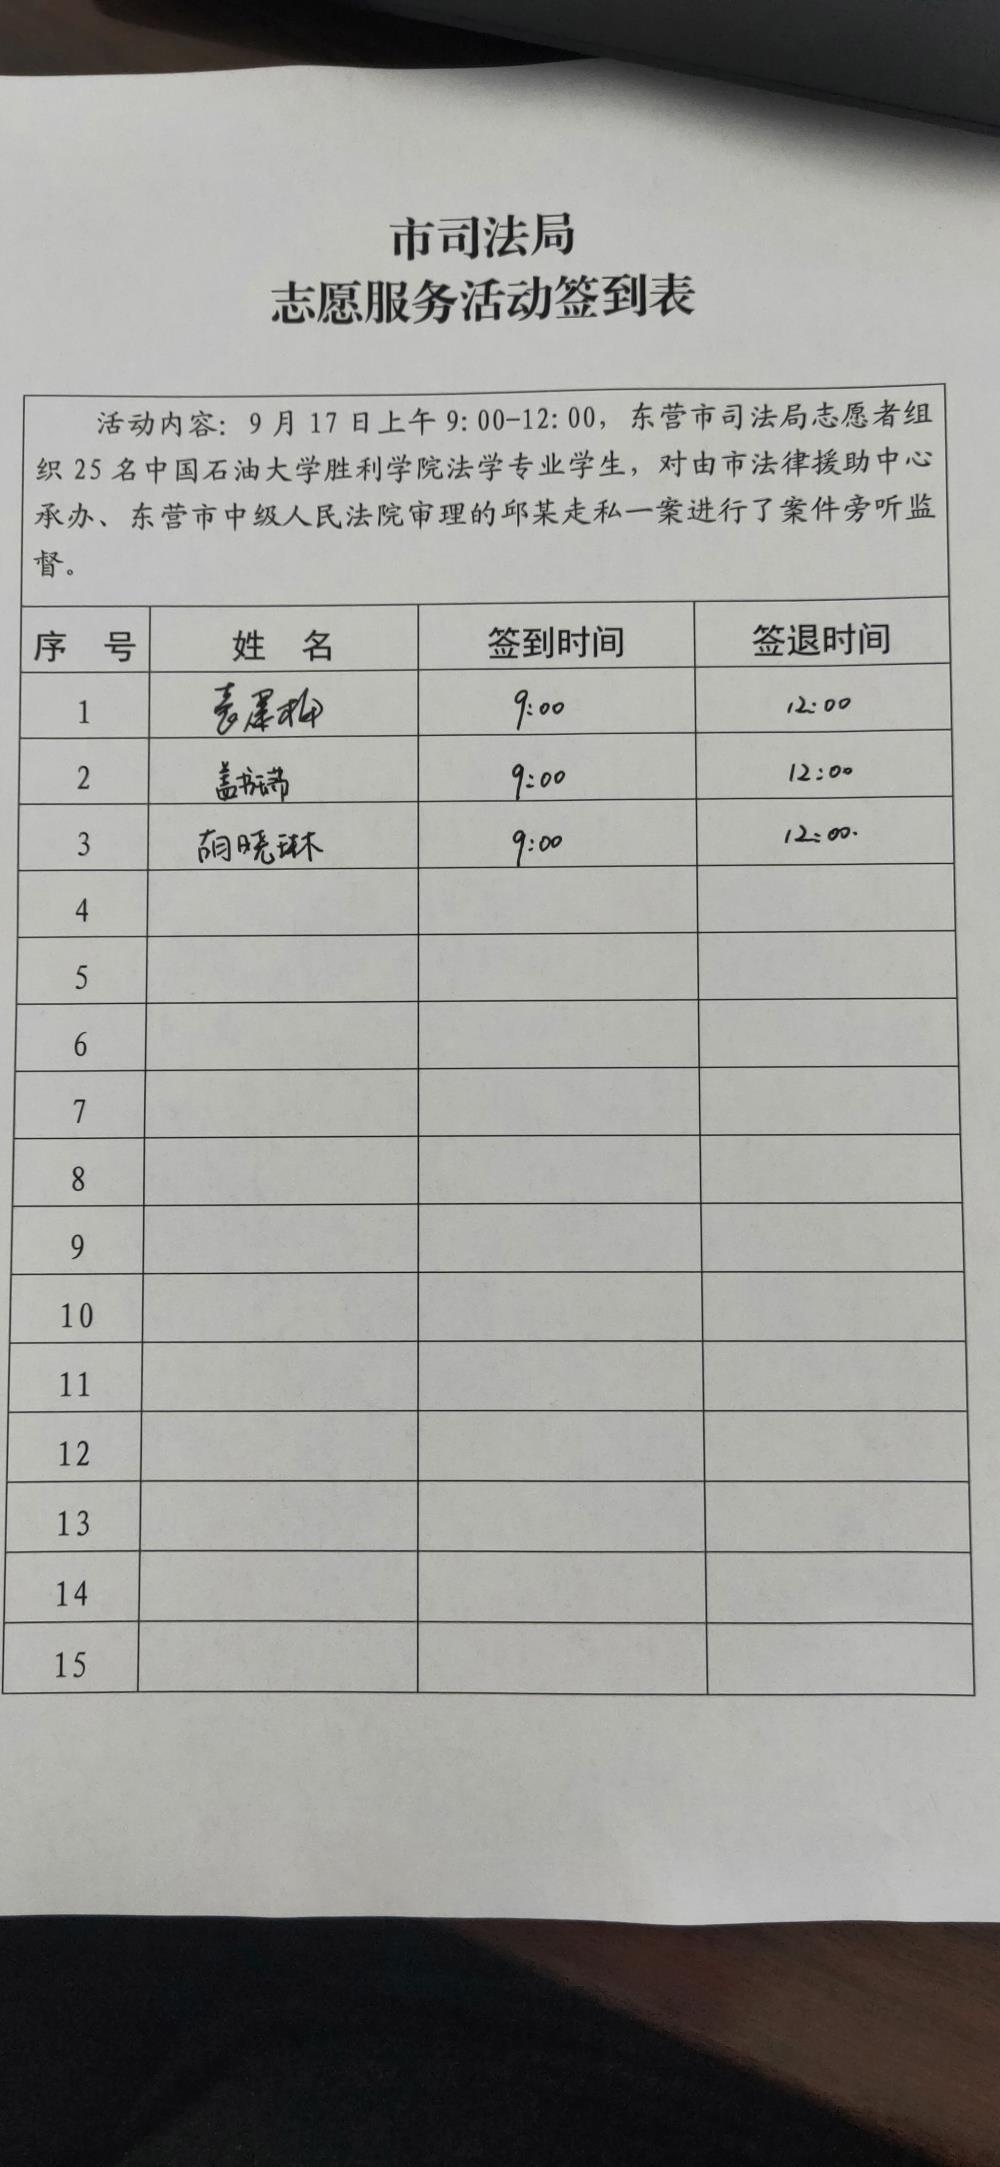 市司法局
志愿服务活动签到表
活动内容：9月17日上午9：00-12：00，东营市司法局志愿者组
织25名中国石油大学胜利学院法学专业学生，对由市法律援助中心
承办、东营市中级人民法院审理的邱某走私一案进行了案件旁听监
督。
序 号 姓 名 签到时间 签退时间
1 9:00 12:00
2 9:00 12:00
3 胡晓琳 9:00 12:00.
4
5
6
7
8
9
10
11
12
13
14
15